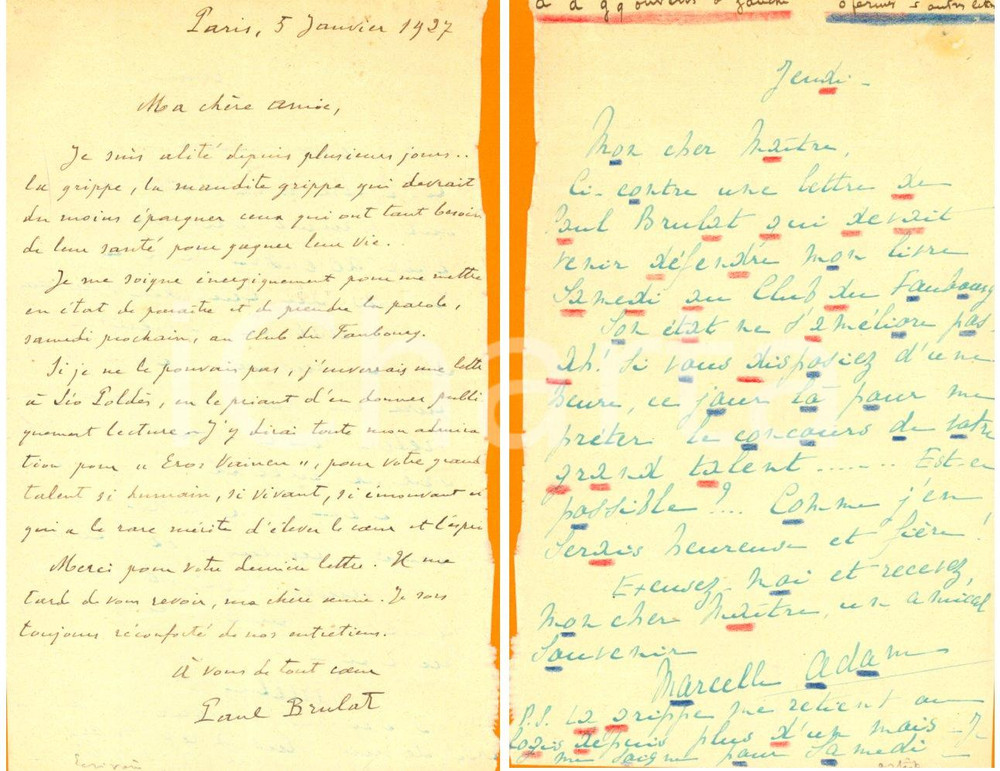 Paris, 5 Janvier 1927
Ma chère amie,
Je suis alité depuis plusieurs jours..
la grippe, la maudite grippe qui devrait
du moins épargner ceux qui ont tant besoin
de leur santé pour gagner leur vie.
Je me soigne énergiquement pour me mettre
en état de paraître et de prendre la parole,
samedi prochain, au Club du Faubourg.
Si je ne le pouvais pas, j'enverrais une lettre
à Léo Poldès, en le priant d'en donner publi
quement lecture. J'y dirai toute mon admira
tion pour « Eros Vaincu », pour votre grand
talent si humain, si vivant, si émouvant et
qui a le rare mérite d'élever le cœur et l'esprit
Merci pour votre dernière lettre. Il me
tarde de vous revoir, ma chère amie. Je sors
toujours réconforté de nos entretiens.
À vous de tout cœur
Paul Brulat
Ecrivain
a d g q ouverts à gauche
o fermés
autres lettres
Jeudi -
Mon cher Maître,
Ci-contre une lettre de
Paul Brulat qui devait
venir défendre mon livre
Samedi au Club du Faubourg
Son état ne s'améliore pas
ah! Si vous disposiez d'une
heure, ce jour là pour me
prêter le concours de votre
grand talent ....... Est-ce
possible ?... Comme j'en
serais heureuse et fière!
Excusez-moi et recevez,
mon cher Maître, un amical
Souvenir
Marcelle Adam
P.S. La grippe me retient au
logis depuis plus d'un mois - Je
me soigne pour Samedi -